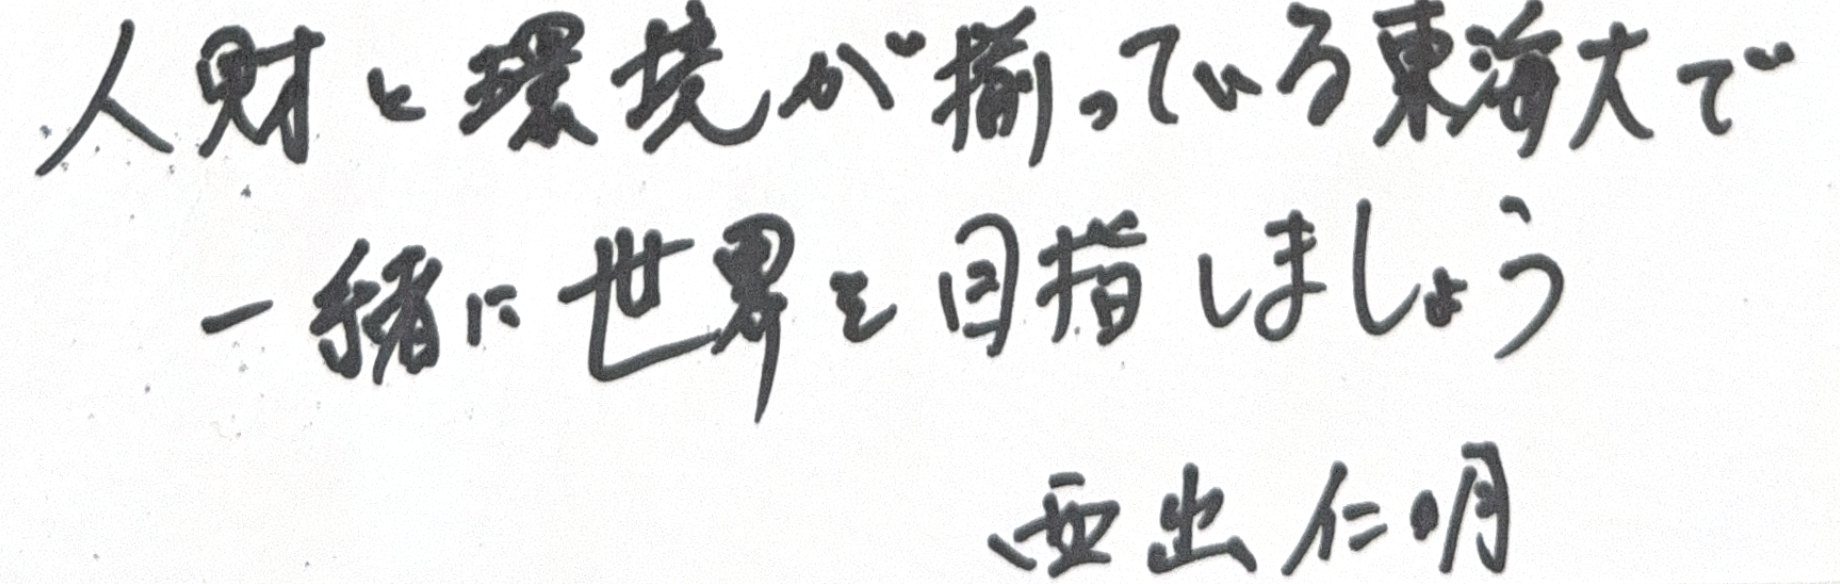 人財と環境が揃っている東海大で
一緒に世界を目指しましょう
西出仁明